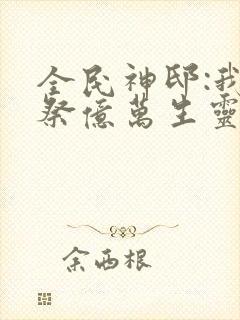 全民神邸:我
祭億萬生靈
余西根